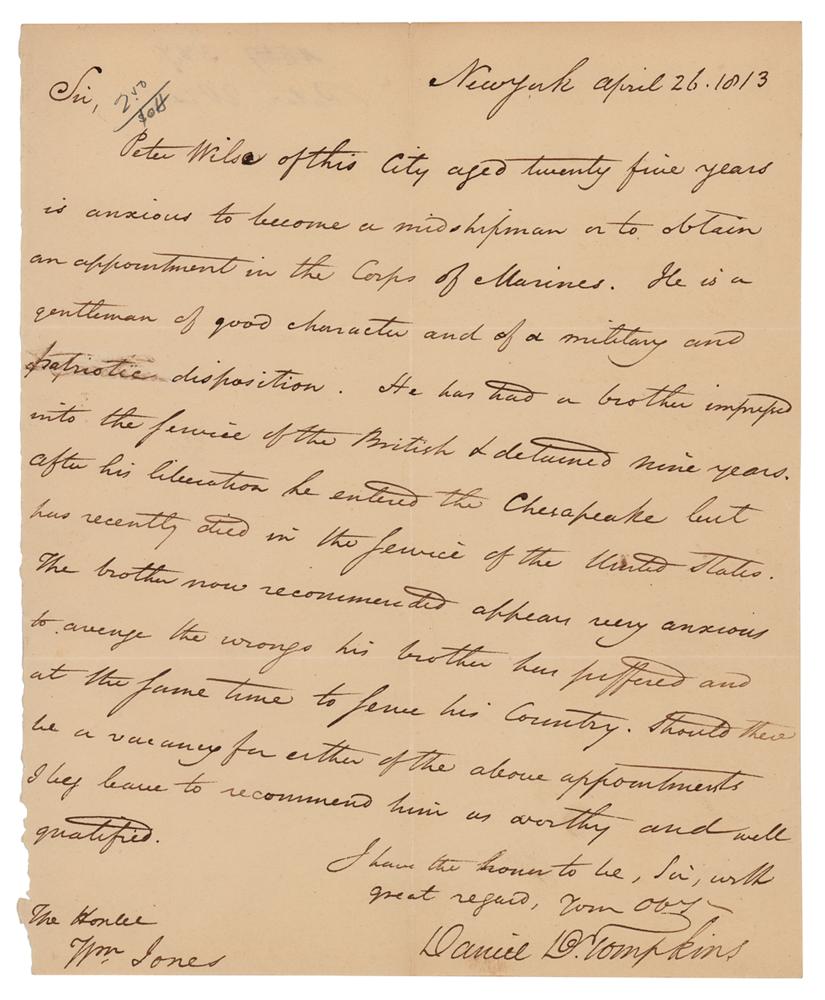 New York April 26. 1813
Sir,
2.50
Peter Wilse of this City aged twenty five years
is anxious to become a midshipman or to obtain
an appointment in the Corps of Marines. He is a
gentleman of good character and of a military and
patriotic disposition. He has had a brother impressed
into the service of the British & detained nine years.
after his liberation he entered the Chesapeake but
has recently died in the service of the United States.
The brother now recommended appears very anxious
to avenge the wrongs his brother has suffered and
at the same time to serve his Country. Should there
be a vacancy for either of the above appointments
I beg leave to recommend him as worthy and well
qualified.
I have the honor to be, Sir, with
great regard, Your Obt
Daniel D. Tompkins
The Honble
Wm Jones